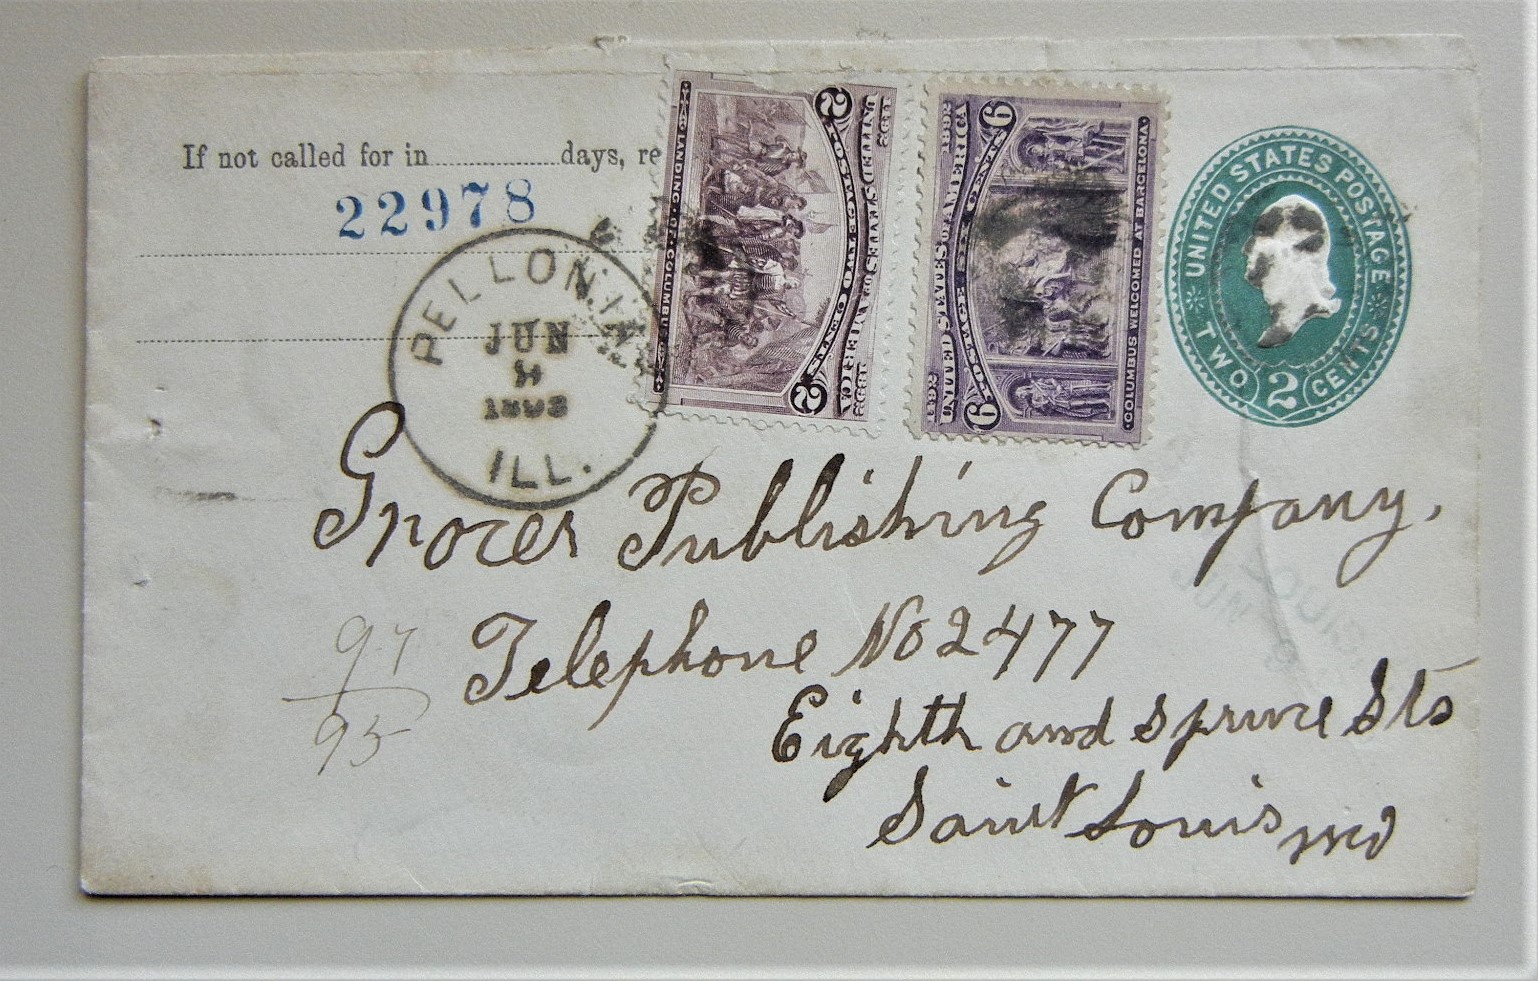 If not called for in ............ days, re
22978
PELLONIA
JUN
1893
ILL.
LANDING OF COLUMBUS
2 POSTAGE TWO CENTS 2
1492 UNITED STATES OF AMERICA 1892
1492 UNITED STATES OF AMERICA 1892
6 POSTAGE SIX CENTS 6
COLUMBUS WELCOMED AT BARCELONA
UNITED STATES POSTAGE
TWO 2 CENTS
Grocer Publishing Company,
Telephone No 2477
Eighth and Spruce Sts
Saint Louis Mo
97
95
LOUIS
JUN 9